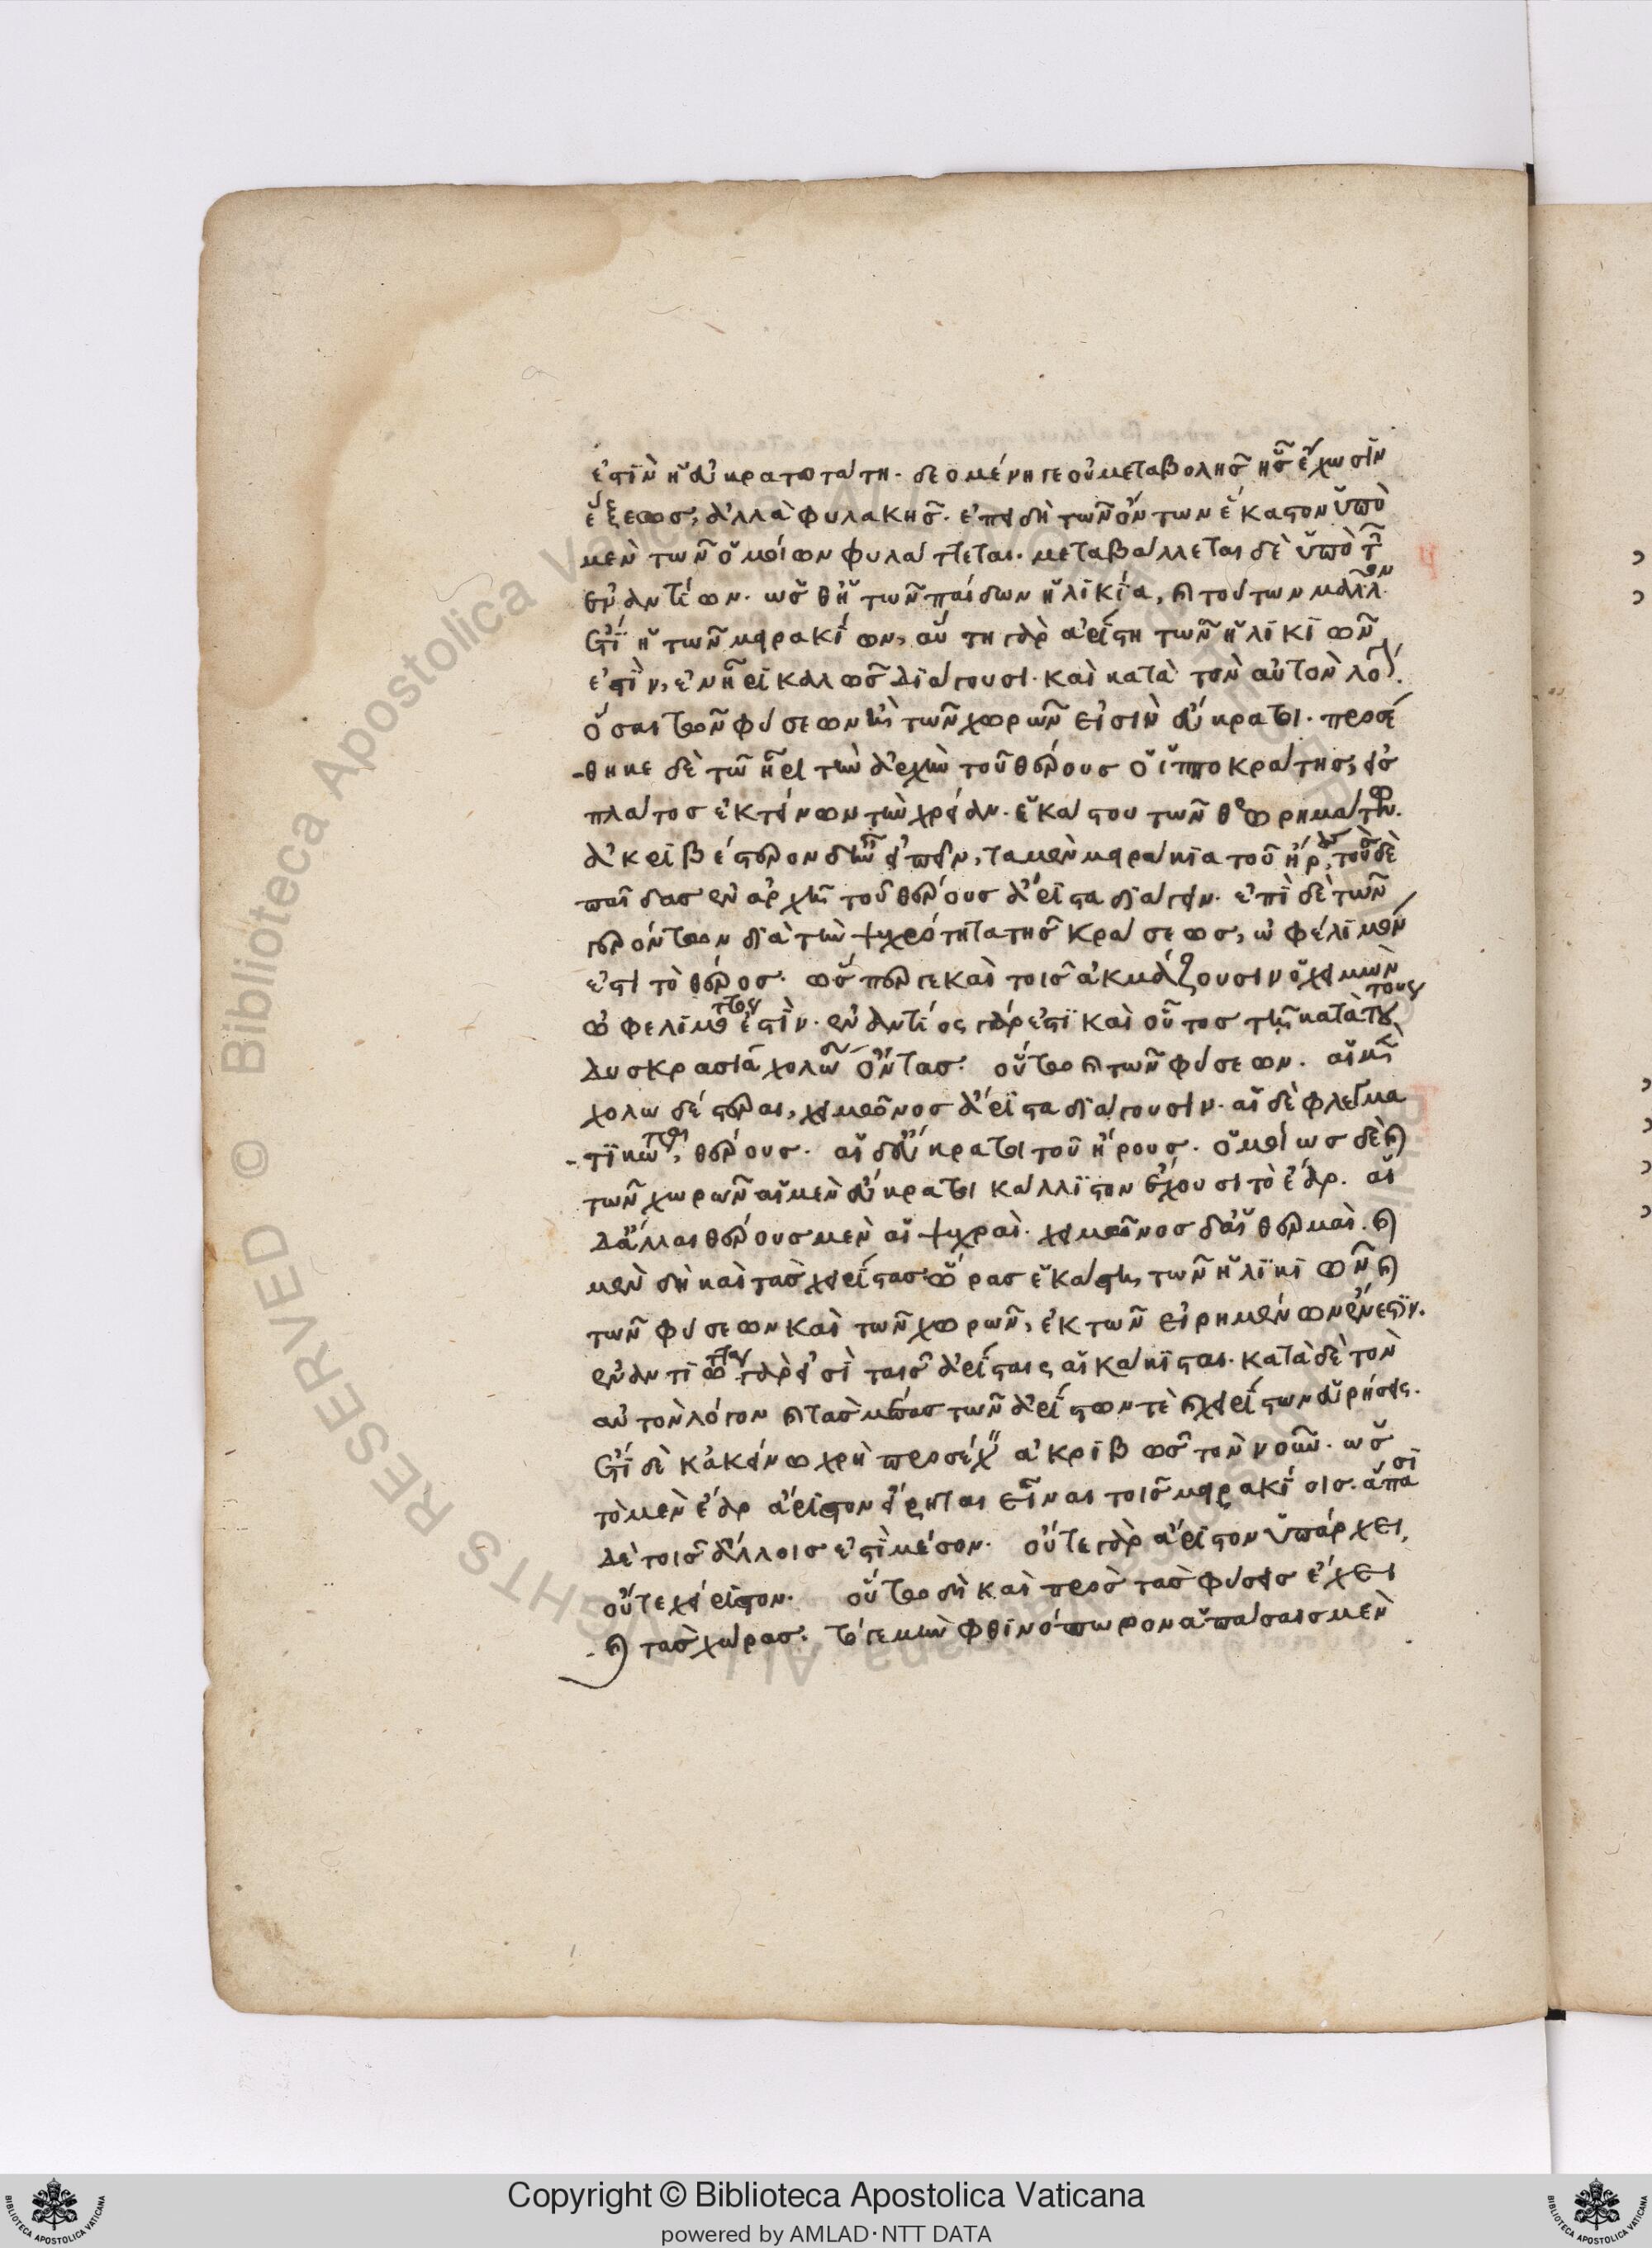 ἐστὶν ἡ εὐκρατοτάτη. δεομένη γε οὐ μεταβολῆς ἧς ἔχωσιν
ἕξεως, ἀλλὰ φυλακῆς. ἐπειδὴ τῶν ὄντων ἕκαστον ὑπὸ
μὲν τῶν ὁμοίων φυλάττεται. μεταβάλλεται δὲ ὑπὸ τῶν
ἐναντίων. ὥσθ ἡ τῶν παίδων ἡλικία, καὶ τούτων μᾶλλον
ἔτι ἡ τῶν μειρακίων, αὕτη γὰρ ἀρίστη τῶν ἡλικιῶν
ἐστὶν, ἐν ἦρι καλῶς διάγουσι. καὶ κατὰ τὸν αὐτὸν λόγ.
ὅσαι τῶν φύσεων καὶ τῶν χωρῶν εἰσὶν εὔκρατοι. προσέ
-θηκε δὲ τῶ ἦρι τὴν ἀρχὴν τοῦ θέρους ὁ ἱπποκράτης, εἰς
πλάτος ἐκτείνων τὴν χρείαν. ἑκάστου τῶν θεωρημάτων.
ἀκριβέστερον δ ἦν εἰπεῖν, τὰ μὲν μειράκια τοῦ ἦρος, τοὺς δὲ
παῖδας ἐν ἀρχῆ τοῦ θέρους ἄριστα διάγειν. ἐπὶ δὲ τῶν
γερόντων διὰ τὴν ψυχρότητα τῆς κράσεως, ὠφέλιμόν
ἐστι τὸ θέρος. ὥσπερ γε καὶ τοῖς ἀκμάζουσιν ὁ χειμὼν
ὠφελιμώτατος ἐστὶν. ἐναντίος γάρ ἐστι καὶ οὗτος τῆ κατὰ τούτους
δυσκρασία χολώδεις ὄντας. οὕτω καὶ τῶν φύσεων. αἱ μὲν
χολωδέστεραι, χειμῶνος ἄριστα διάγουσιν. αἱ δὲ φλεγμα
-τικώτεραι, θέρους. αἱ δ εὔκρατοι τοῦ ἦρους. ὁμοίως δὲ καὶ
τῶν χωρῶν αἱ μὲν εὔκρατοι κάλλιστον ἔχουσι τὸ ἔαρ. αἱ
δ ἄλλαι θέρους μὲν αἱ ψυχραὶ. χειμῶνος δ αἱ θερμαὶ. καὶ
μὲν δὴ καὶ τὰς χειρίστας ὥρας ἑκάστη, τῶν ἡλικιῶν καὶ
τῶν φύσεων καὶ τῶν χωρῶν, ἐκ τῶν εἰρημένων ἔνεστιν.
ἐναντιώταται γὰρ εἰσὶ ταῖς ἀρίσταις αἱ κάκισται. κατὰ δὲ τὸν
αὐτὸν λόγον καὶ τὰς μέσας τῶν ἀρίστων τὲ καὶ χειρίστων εὑρήσεις.
ἔτι δὲ κἀκείνω χρὴ προσέχειν ἀκριβῶς τὸν νοῦν. ὡς
τὸ μὲν ἔαρ ἄριστον εἴρηται εἶναι τοῖς μειρακίοις. ἅπασι
δὲ τοῖς ἄλλοις ἐστὶ μέσον. οὔτε γὰρ ἄριστον ὑπάρχει,
οὔτε χείριστον. οὕτω δὴ καὶ πρὸς τὰς φύσεις ἔχει
-καὶ τὰς χώρας. τό γε μὴν φθινόπωρον ἁπάσαις μὲν
Copyright © Biblioteca Apostolica Vaticana
powered by AMLAD·NTT DATA